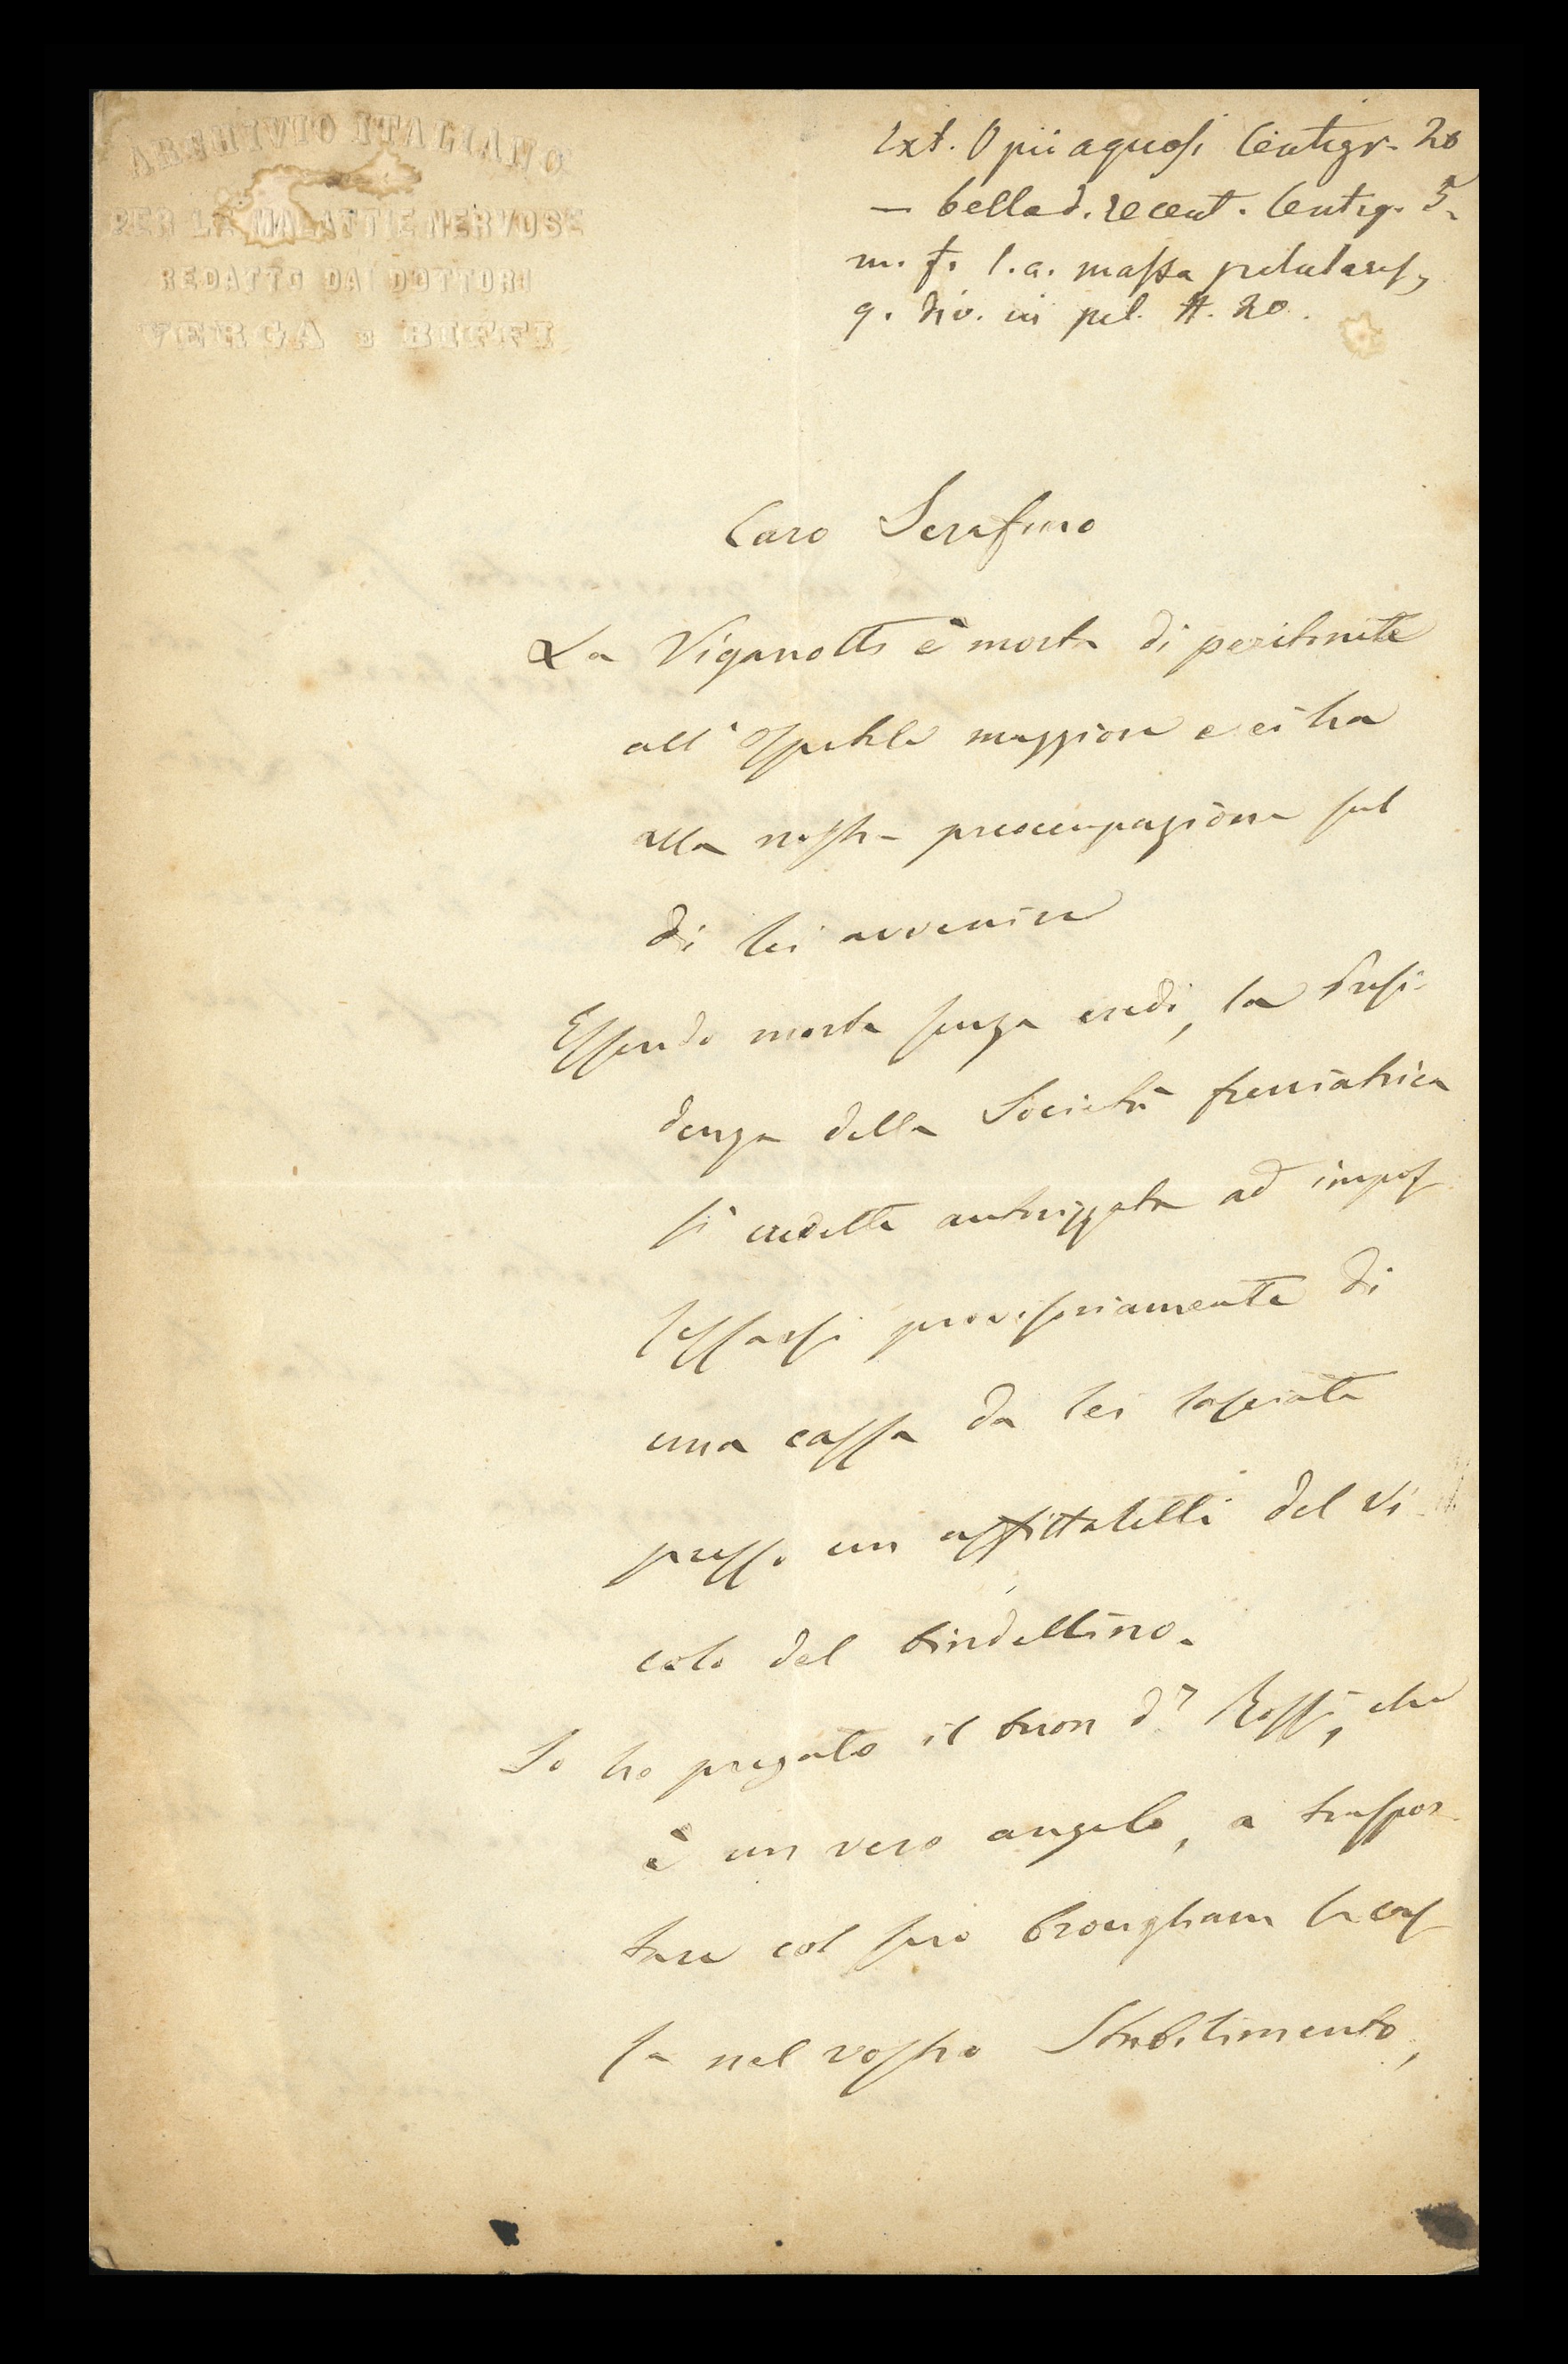 ARCHIVIO ITALIANO
PER LE MALATTIE NERVOSE
REDATTO DAI DOTTORI
VERGA E BIFFI
Ext. Opii aquosi Centigr. 20
— bellad. recent. Centigr. 5
m. f. l. a. massa pilulares,
q. div. in pil. N. 20.
Caro Serafino
La Viganotti è morta di peritonite
all'Ospitale maggiore e ci ha
alla nostra preoccupazione sul
di lei avvenire
Essendo morta senza eredi, la Presi-
denza della Società freniatrica
si credette autorizzata ad impos
sessarsi provvisoriamente di
una cassa da lei lasciata
presso un affittaletti del Vi
colo del bindellino.
Io ho pregato il buon d.r Rossi, che
è un vero angelo, a traspor
tare col suo brougham la cas
sa nel vostro Stabilimento,